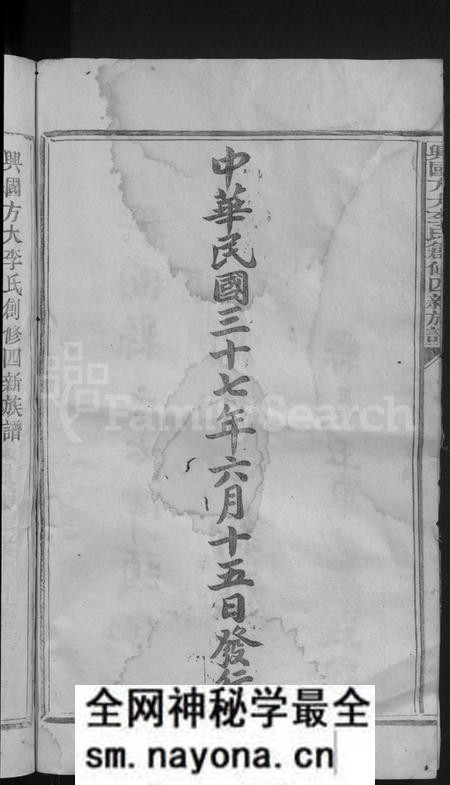 興國方大李氏創修四新族譜
中華民國三十七年六月十五日發行
興國方大李氏創修四新族譜
FamilySearch
全网神秘学最全
sm.nayona.cn